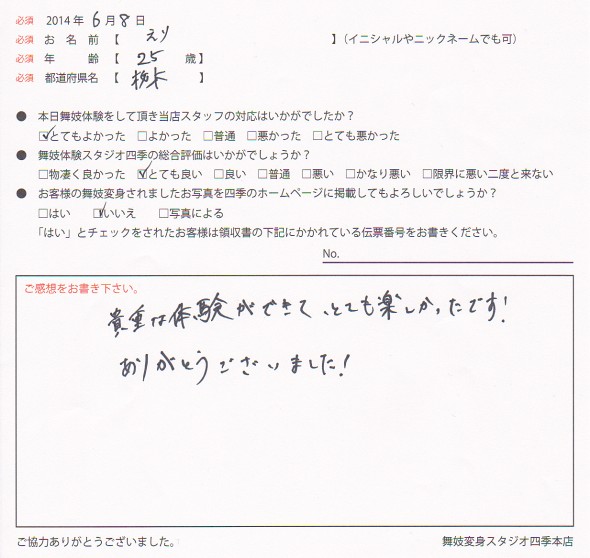 必須 2014年 6月 8日
必須 お名前【 えり 】（イニシャルやニックネームでも可）
必須 年齢【 25 歳】
必須 都道府県名【 栃木 】
● 本日舞妓体験をして頂き当店スタッフの対応はいかがでしたか？
☑とてもよかった □よかった □普通 □悪かった □とても悪かった
● 舞妓体験スタジオ四季の総合評価はいかがでしょうか？
□物凄く良かった ☑とても良い □良い □普通 □悪い □かなり悪い □限界に悪い二度と来ない
● お客様の舞妓変身されましたお写真を四季のホームページに掲載してもよろしいでしょうか？
□はい ☑いいえ □写真による
「はい」とチェックをされたお客様は領収書の下記にかかれている伝票番号をお書きください。
No.
ご感想をお書き下さい。
貴重な体験ができて、とても楽しかったです！
ありがとうございました！
ご協力ありがとうございました。 舞妓変身スタジオ四季本店